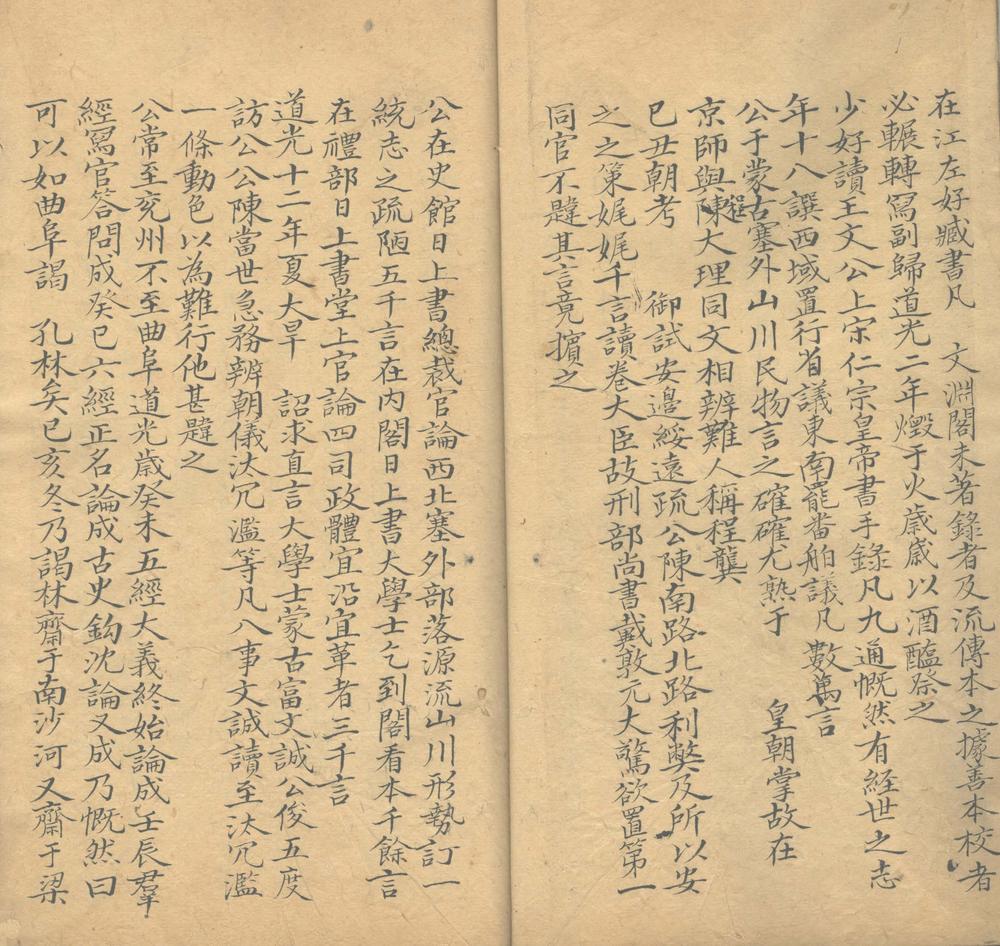 在江左好臧書凡　文淵閣未著錄者及流傳本之據善本校者
必輾轉寫副歸道光二年燬于火歲歲以酒醢祭之
少好讀王文公上宋仁宗皇帝書手錄凡九通慨然有経世之志
年十八譔西域置行省議東南罷番舶議凡數萬言　皇朝掌故在
公于蒙古塞外山川民物言之確確尤熟于
京師與陳大理同文相辨難人稱程龔
已丑朝考　御試安邊綏遠疏公陳南路北路利獘及所以安
之之策娓娓千言讀卷大臣故刑部尚書戴敦元大驚欲置第一
同官不韙其言竟擯之
公在史館日上書總裁官論西北塞外部落源流山川形勢訂一
統志之疏陋五千言在內閣日上書大學士乞到閣看本千餘言
在禮部日上書堂上官論四司政體宜沿宜革者三千言
道光十二年夏大旱　詔求直言大學士蒙古富文誠公俊五度
訪公公陳當世急務辨朝儀汰冗濫等凡八事文誠讀至汰冗濫
一條動色以為難行他甚韙之
公常至兗州不至曲阜道光歲癸未五經大義終始論成壬辰羣
經寫官答問成癸巳六經正名論成古史鉤沈論又成乃慨然曰
可以如曲阜謁　孔林矣已亥冬乃謁林齋于南沙河又齋于梁